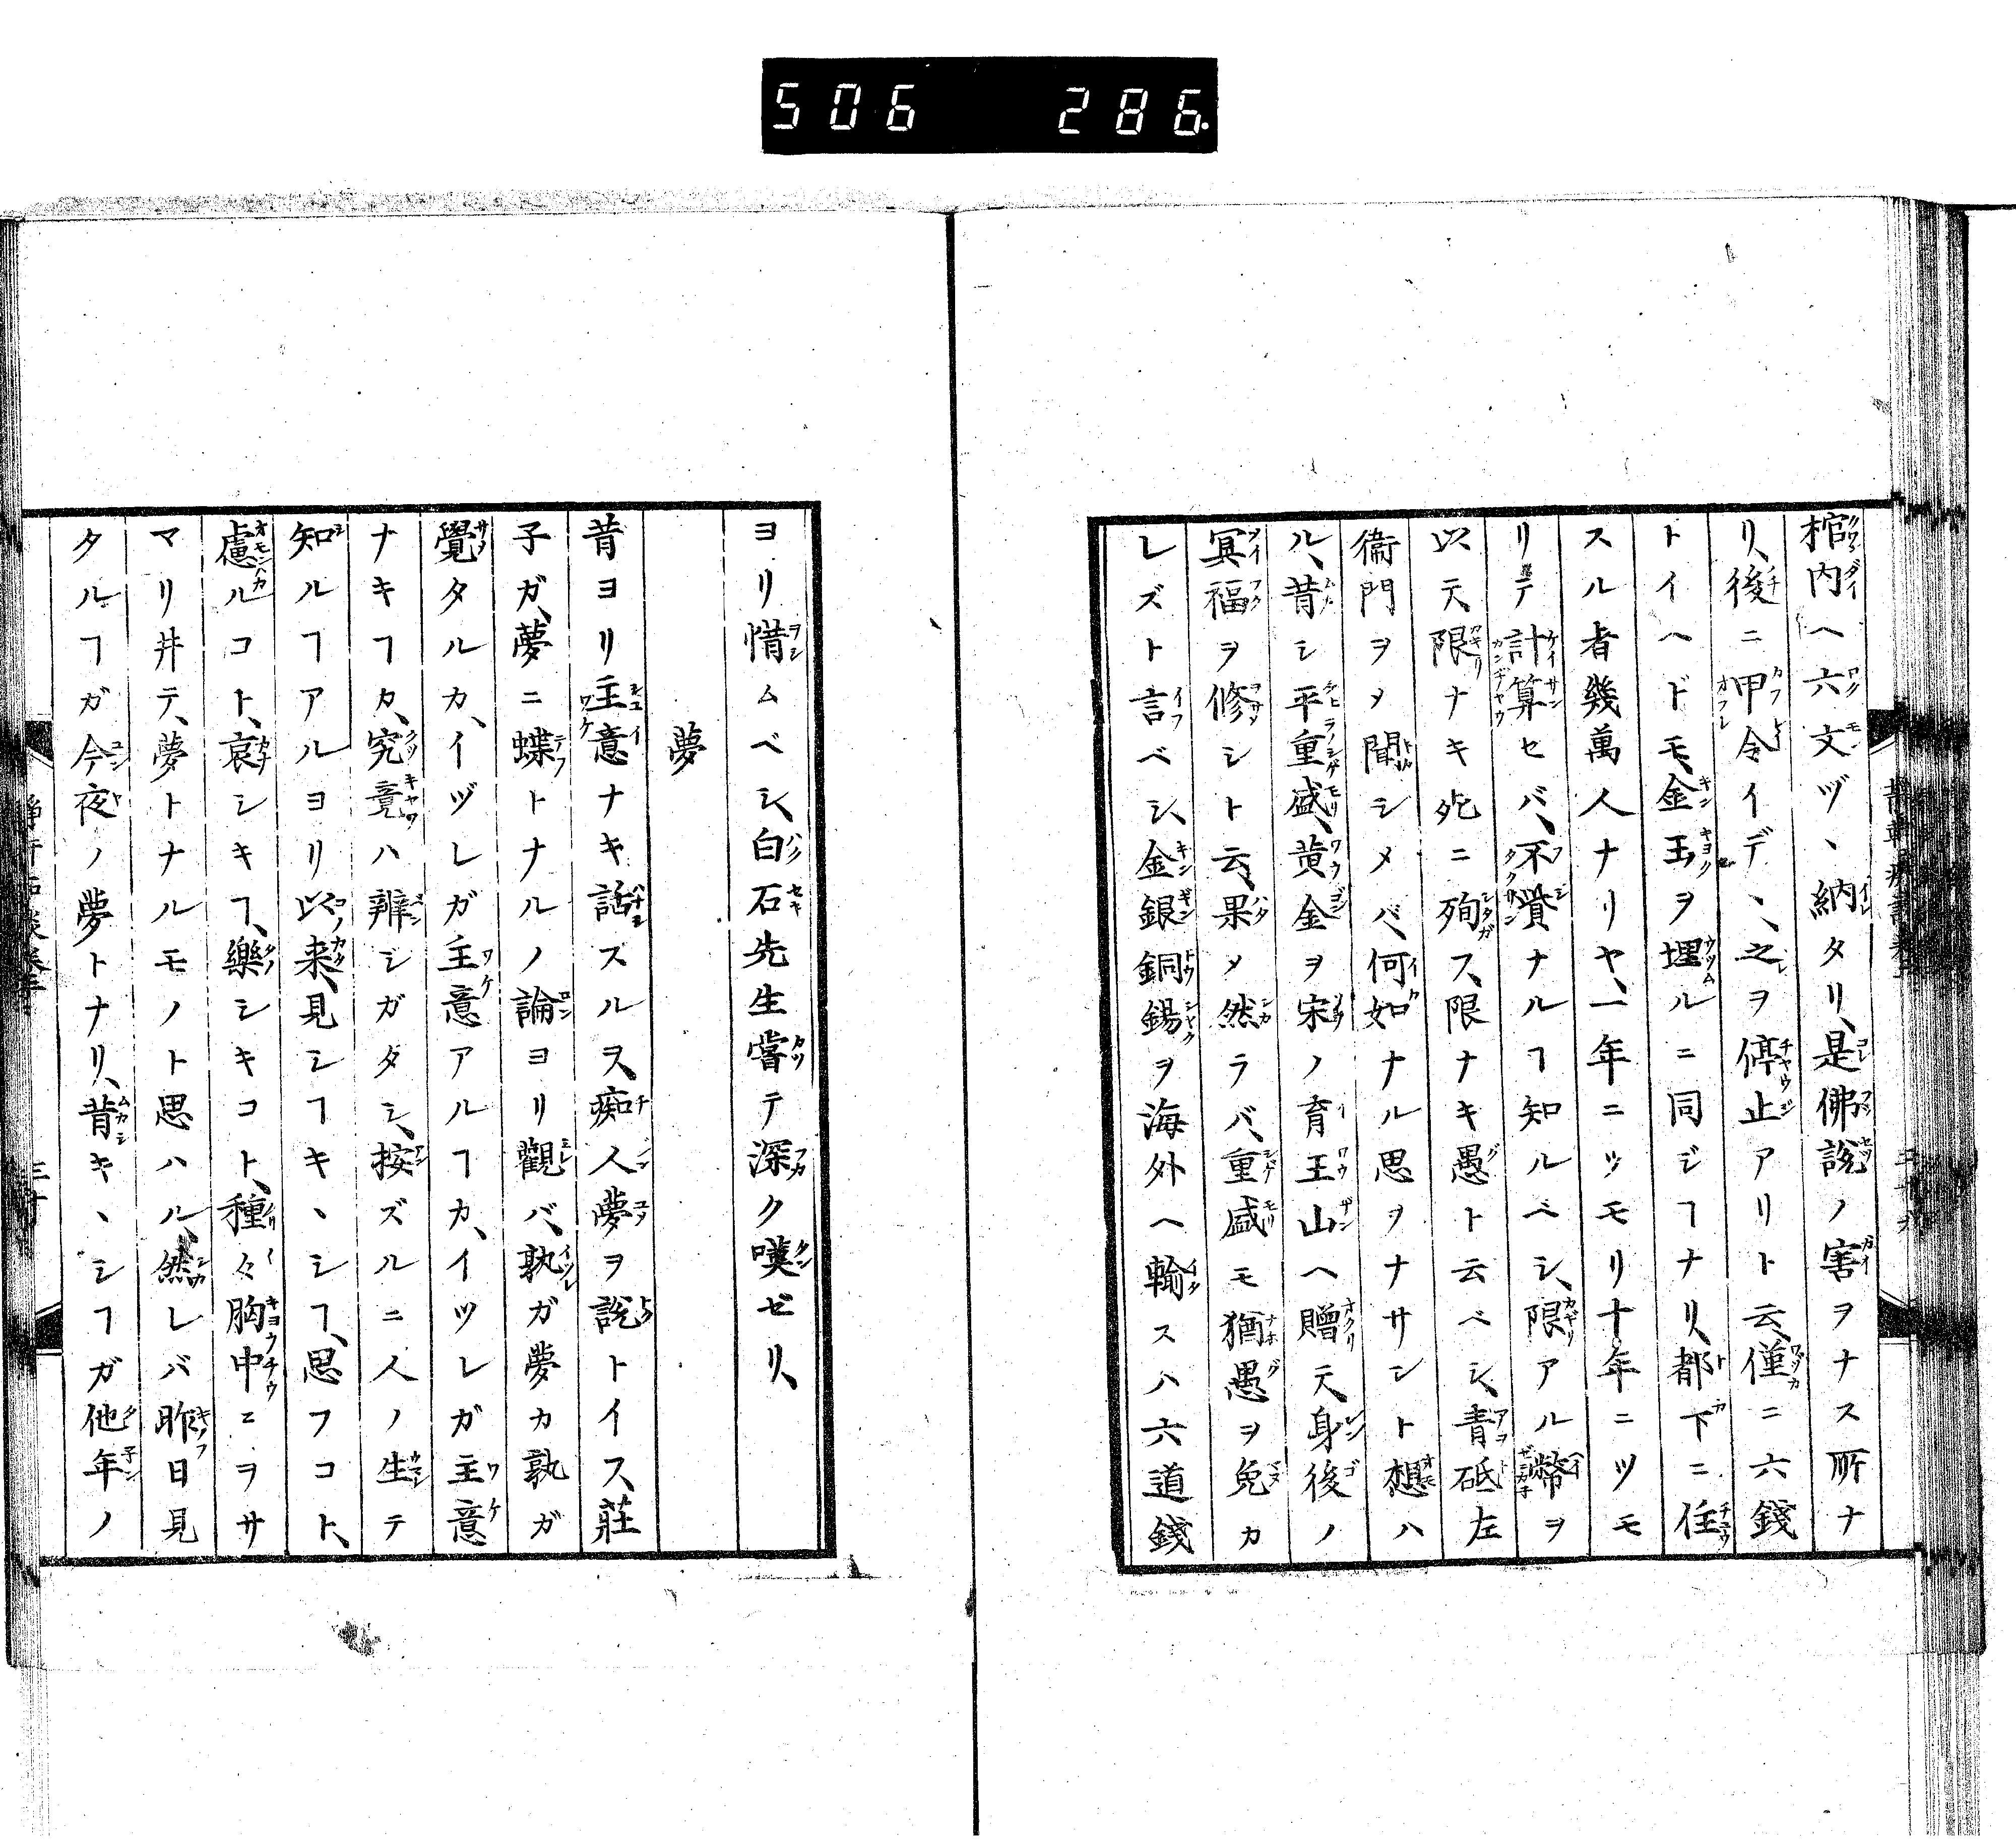 506 286.
棺内ヘ六文ヅヽ納タリ、是佛説ノ害ヲナス所ナ
リ、後ニ甲令イデヽ、之ヲ停止アリト云、僅ニ六錢
トイヘドモ、金玉ヲ埋ルニ同ジヿナリ、都下ニ住
スル者幾萬人ナリヤ、一年ニツモリ十年ニツモ
リテ計算セバ、不貲ナルヿ知ルベシ、限アル幣ヲ
以テ、限ナキ死ニ殉ス、限ナキ愚ト云ベシ、青砥左
衞門ヲメ聞シメバ、何如ナル思ヲナサント想ハ
ル、昔シ平重盛、黄金ヲ宋ノ育王山ヘ贈テ、身後ノ
冥福ヲ修シト云、果メ然ラバ、重盛モ猶愚ヲ免カ
レズト言ベシ、金銀銅錫ヲ海外ヘ輸スハ六道錢
ヨリ惜ムベシ、白石先生嘗テ深ク嘆ゼリ、
夢
昔ヨリ主意ナキ話スルヲ、痴人夢ヲ説トイス、莊
子ガ、夢ニ蝶トナルノ論ヨリ觀バ、孰ガ夢カ孰ガ
覺タルカ、イヅレガ主意アルヿカ、イツレガ主意
ナキヿカ、究竟ハ辨シガタシ、按ズルニ人ノ生テ
知ルヿアルヨリ以来、見シヿキヽシヿ、思フコト、
慮ルコト、哀シキヿ、樂シキコト、種々胸中ニヲサ
マリ井テ、夢トナルモノト思ハル、然レバ昨日見
タルヿガ今夜ノ夢トナリ、昔キヽシヿガ他年ノ